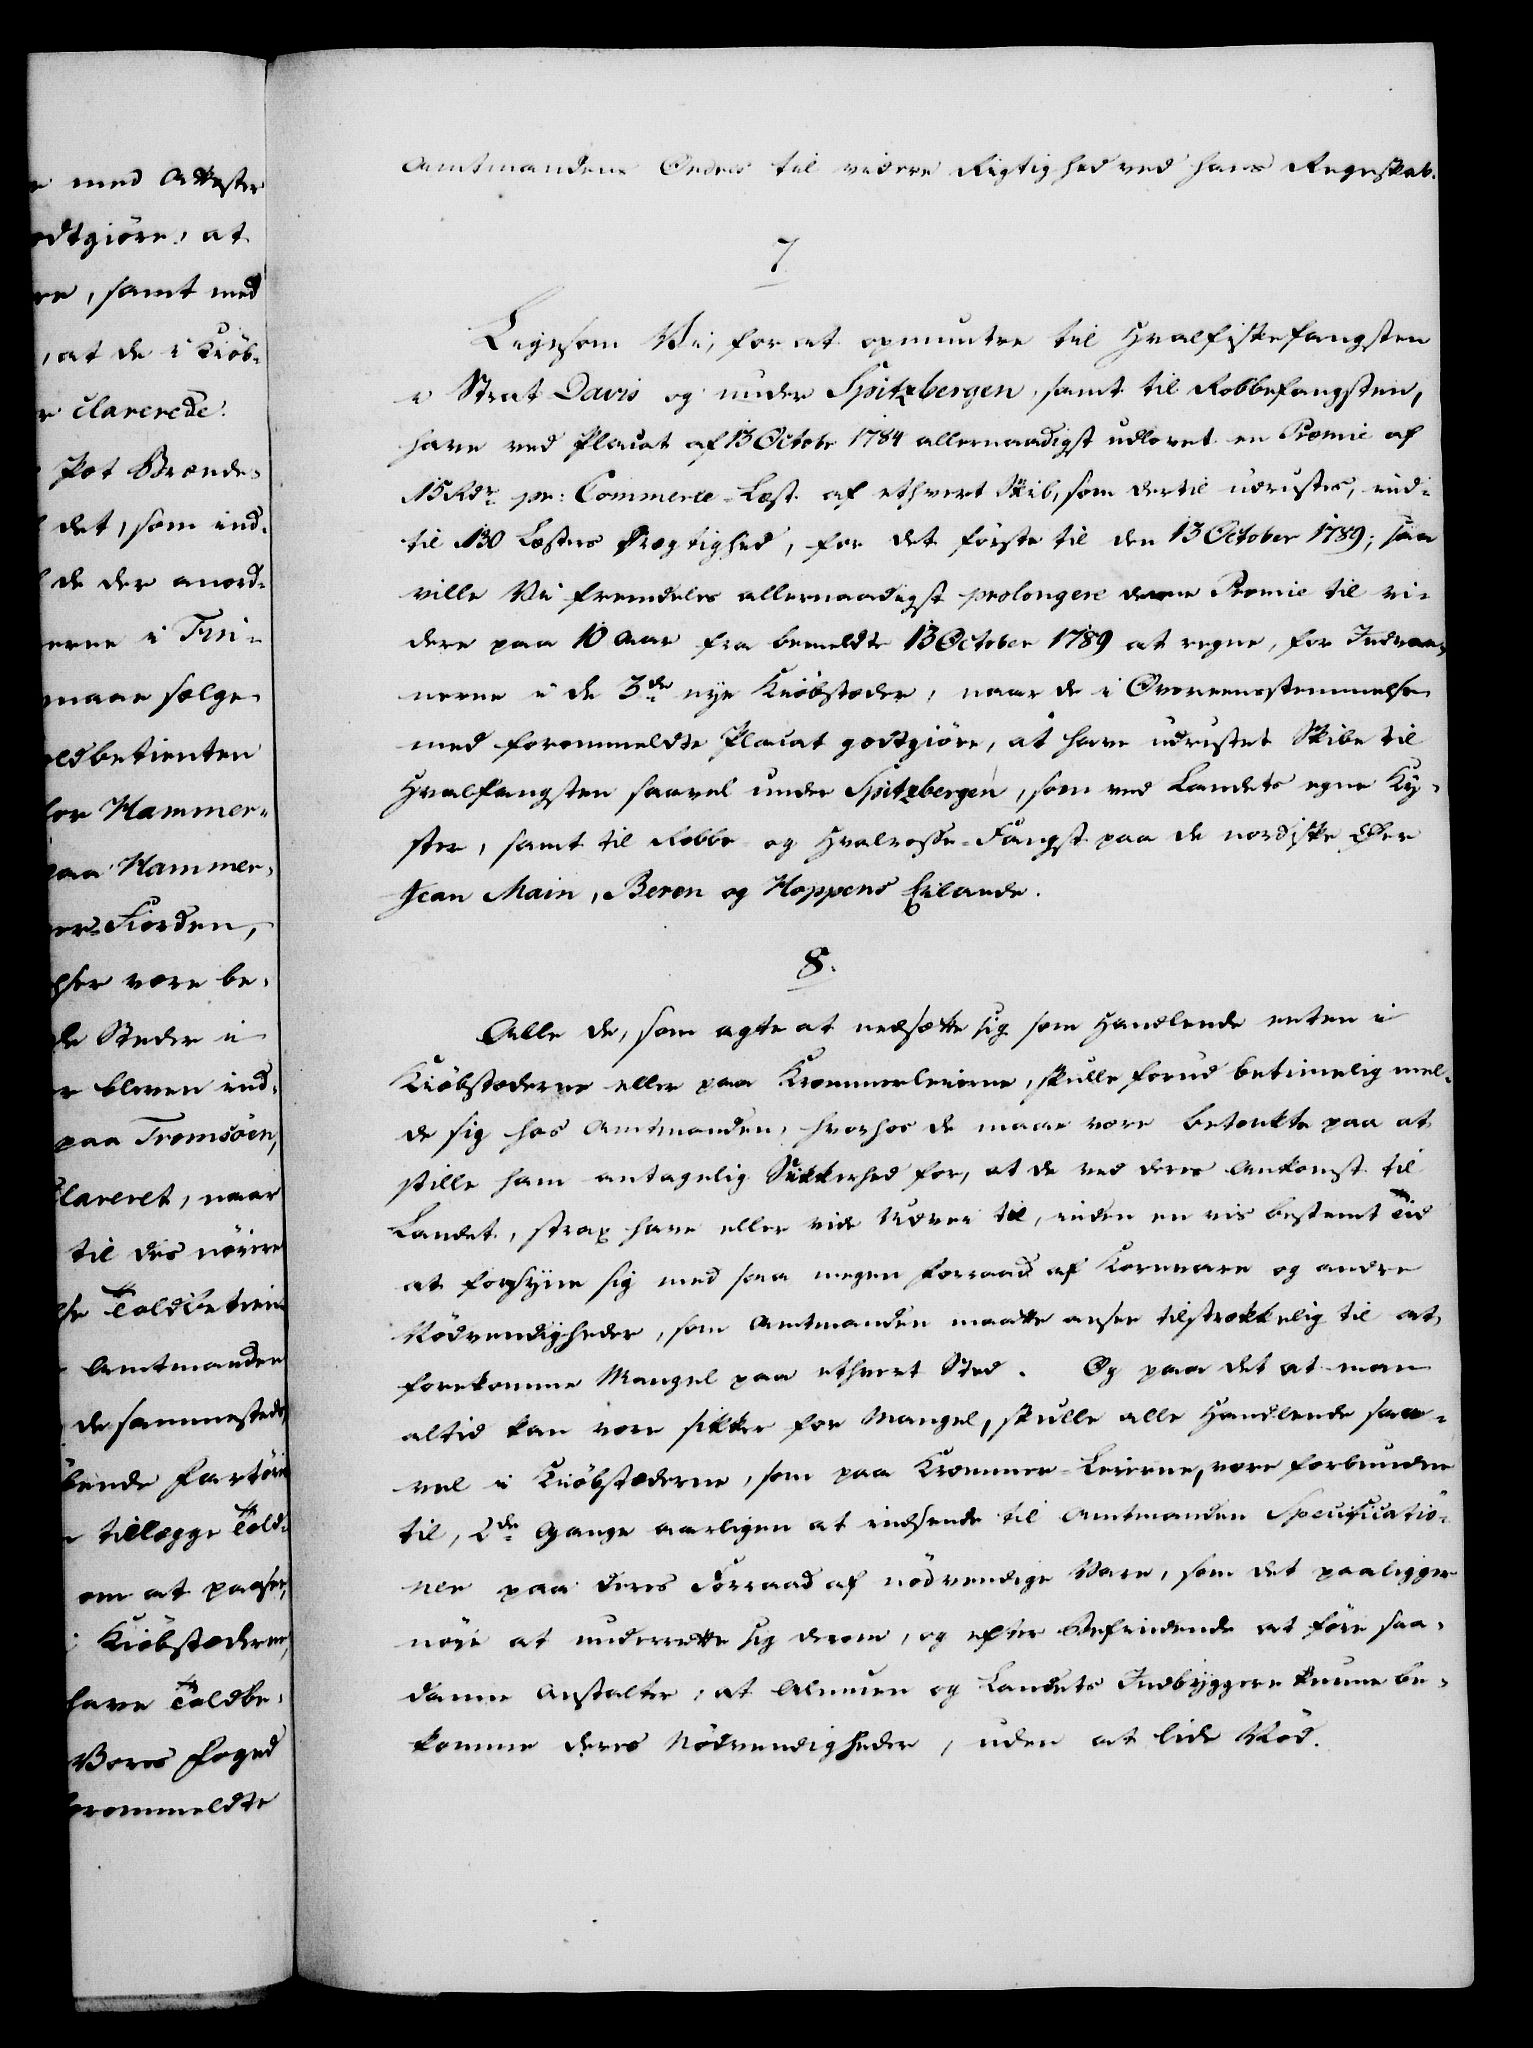 e med Attester
odtgiöre, at
re, samt med
, at de i Kiöb-
r clarerede.
Pot Brænde-
det, som ind-
de der anord-
erne i Fri-
maae sælge
oldbetienten
for Hammer-
paa Hammer-
ers Fiorden,
lser være be-
de Steder i
er bleven ind-
paa Tromsöen,
Clareret, naar
til des nöiere
lse Toldbetien
Amtmanden
de sammesteds,
bende Fartöie
tillægge Told-
om at paasee,
i Kiöbstæderne,
have Toldbe-
Vores Foged
formeldte
Amtmandens Ordres til videre Rigtighed ved hans Regnskab.
7
Ligesom Vi, for at opmuntre til Hvalfiskefangsten
i Strat Davis og under Spitzbergen, samt til Robbefangsten,
have ved Placat af 13 Octobr 1784 allernaadigst udlovet en Præmie af
15 Rdr pr: Commerce-Læst af ethvert Skib, som dertil udrustes, ind-
til 130 Læsters Drægtighed, for det förste til den 13 October 1789; saa
ville Vi fremdeles allernaadigst prolongere denne Præmie til vi-
dere paa 10 Aar fra bemeldte 13 October 1789 at regne, for Indvaa-
nerne i de 3de nye Kiöbstæder, naar de i Overeensstemmelse
med forommeldte Placat godtgiöre, at have udrustet Skibe til
Hvalfangsten saavel under Spitzbergen, som ved Landets egne Ky-
ster, samt til Robbe- og Hvalrosse-Fangst paa de nordiske Öer
Jean Main, Beren og Hoppens Eilande.
8.
Alle de, som agte at nedsætte sig som Handlende enten i
Kiöbstæderne eller paa Kræmmerleierne, skulle forud betimelig mel-
de sig hos Amtmanden, hvorhos de maae være betænkte paa at
stille ham antagelig Sikkerhed for, at de ved deres Ankomst til
Landet, strax have eller vide Udvei til, inden en vis bestemt Tid
at forsyne sig med saa megen Forraad af Kornvare og andre
Nödvendigheder, som Amtmanden maatte ansee tilstrækkelig til at
forekomme Mangel paa ethvert Sted. Og paa det at man
altid kan være sikker for Mangel, skulle alle Handlende saa-
vel i Kiöbstæderne, som paa Kræmmer-Leierne, være forbundne
til, 2de Gange aarligen at indsende til Amtmanden Specificatio-
ner paa deres Forraad af nödvendige Vare, som det paaligger
nöie at underrette sig derom, og efter Befindende at föie saa-
danne Anstalter, at Almuen og Landets Indbyggere kunne be-
komme deres Nödvendigheder, uden at lide Nöd.